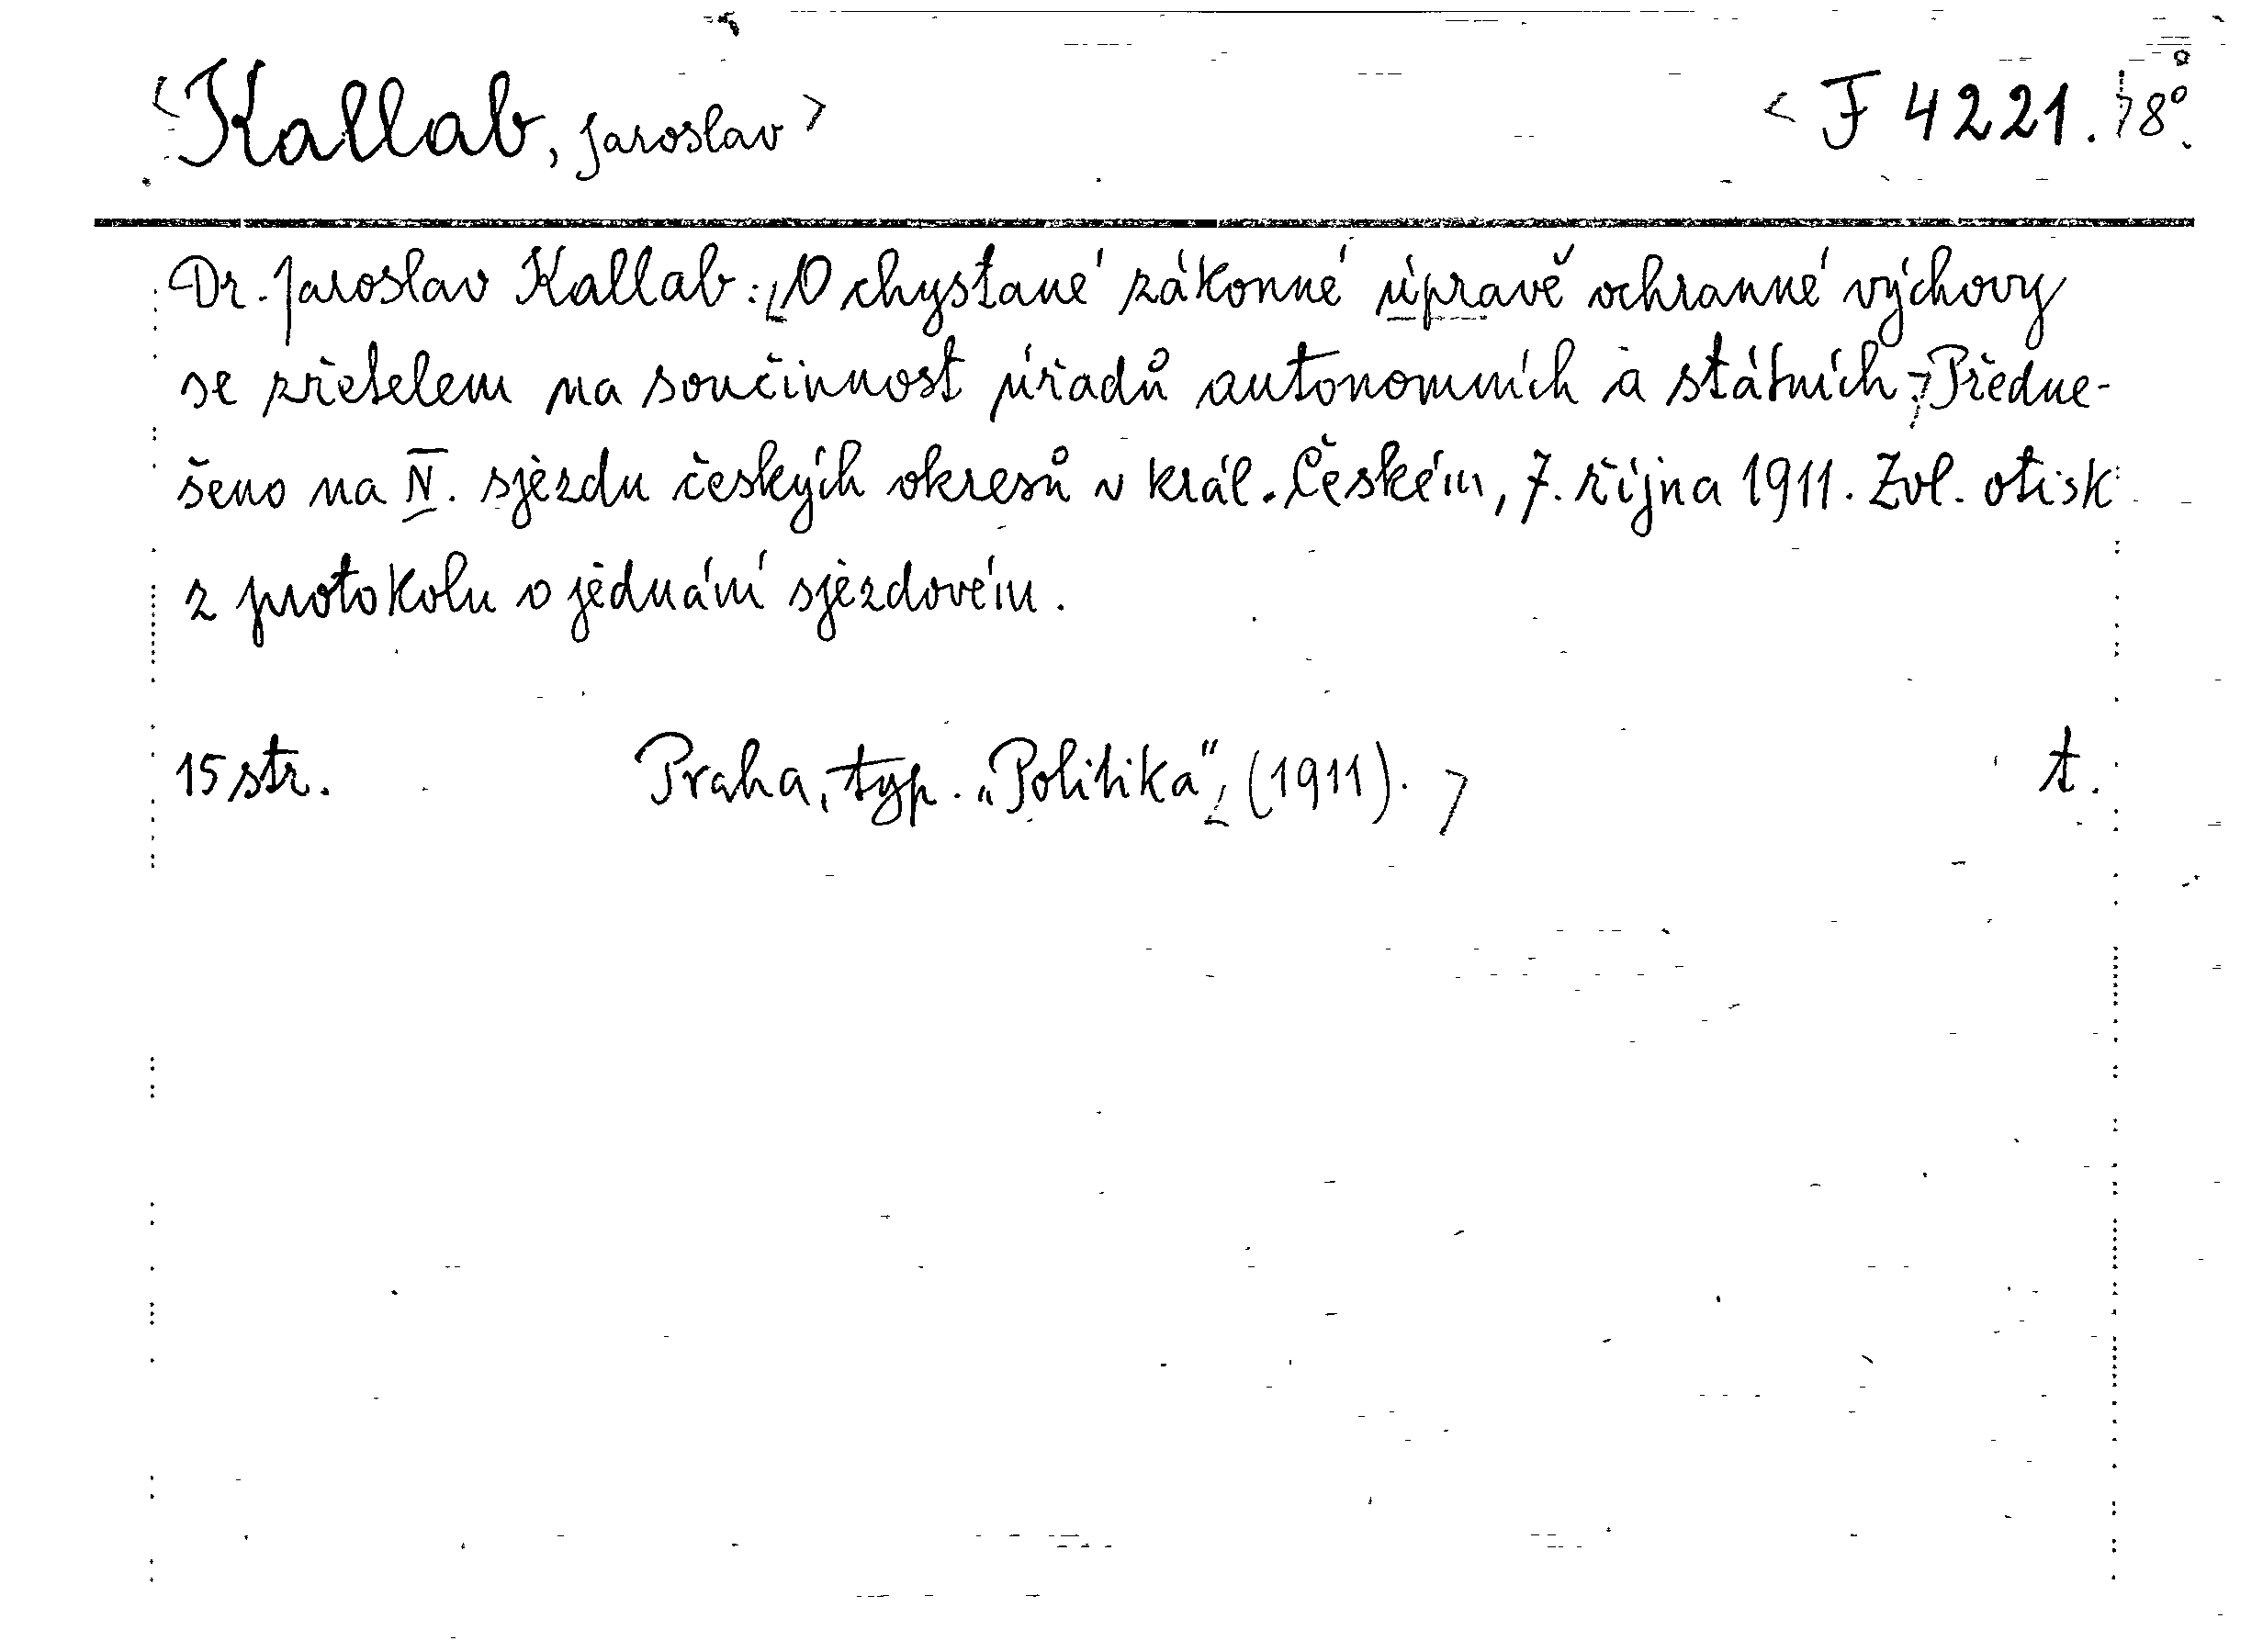 <Kallab, Jaroslav> <F 4221.> 8°.
Dr. Jaroslav Kallab: [O chystané zákonné úpravě ochranné výchovy
se zřetelem na součinnost úřadů autonomních a státních.] Předne-
šeno na IV. sjezdu českých okresů v král. Českém, 7. října 1911. Zvl. otisk
z protokolu o jednání sjezdovém.
15 str. Praha, typ. „Politika“, [(1911).] t.